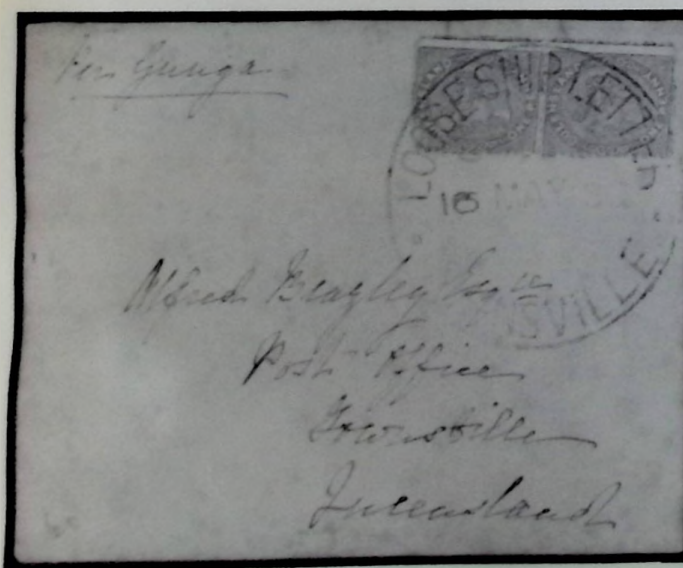 Per Gunga
LOOSE SHIP LETTER
16 MAY
SVILLE
Alfred Beazley Esqre
Post Office
Townsville
Queensland